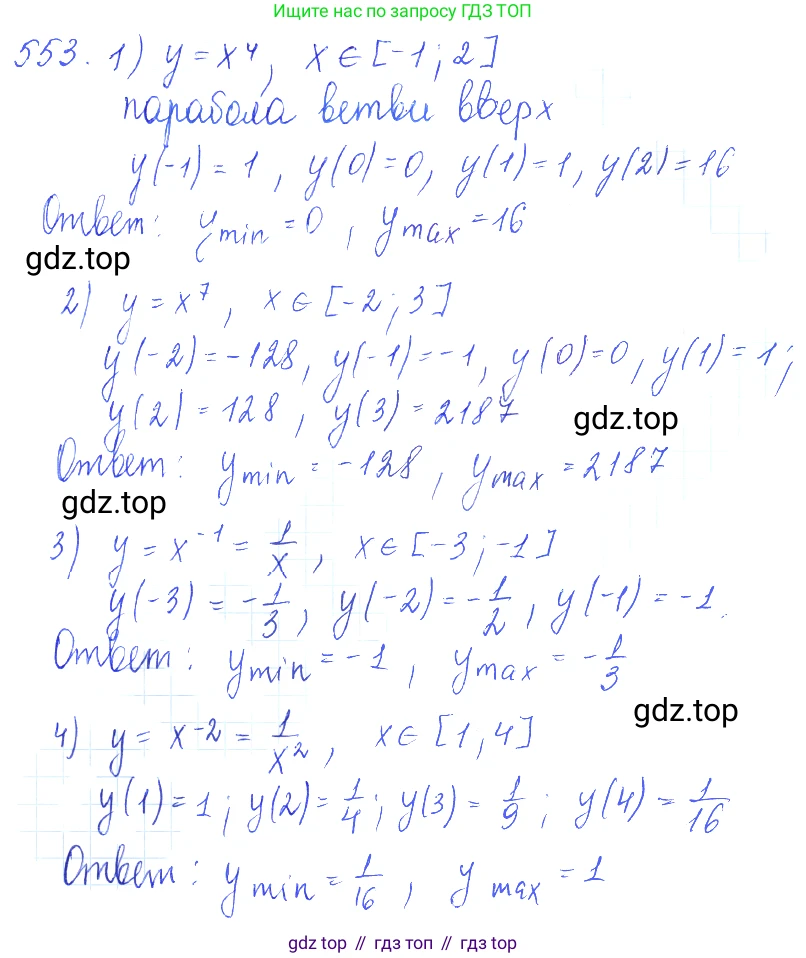 Ищите нас по запросу ГДЗ ТОП
553. 1) y = x⁴, x ∈ [-1; 2]
парабола ветви вверх
y(-1) = 1, y(0) = 0, y(1) = 1, y(2) = 16
Ответ: y min = 0, y max = 16
gdz.top
2) y = x⁷, x ∈ [-2; 3]
y(-2) = -128, y(-1) = -1, y(0) = 0, y(1) = 1;
y(2) = 128, y(3) = 2187
gdz.top
Ответ: y min = -128, y max = 2187
gdz.top
3) y = x⁻¹ = 1/x, x ∈ [-3; -1]
y(-3) = -1/3, y(-2) = -1/2, y(-1) = -1.
Ответ: y min = -1, y max = -1/3
gdz.top
4) y = x⁻² = 1/x², x ∈ [1, 4]
y(1) = 1; y(2) = 1/4; y(3) = 1/9; y(4) = 1/16
Ответ: y min = 1/16, y max = 1
gdz top // гдз топ // gdz top